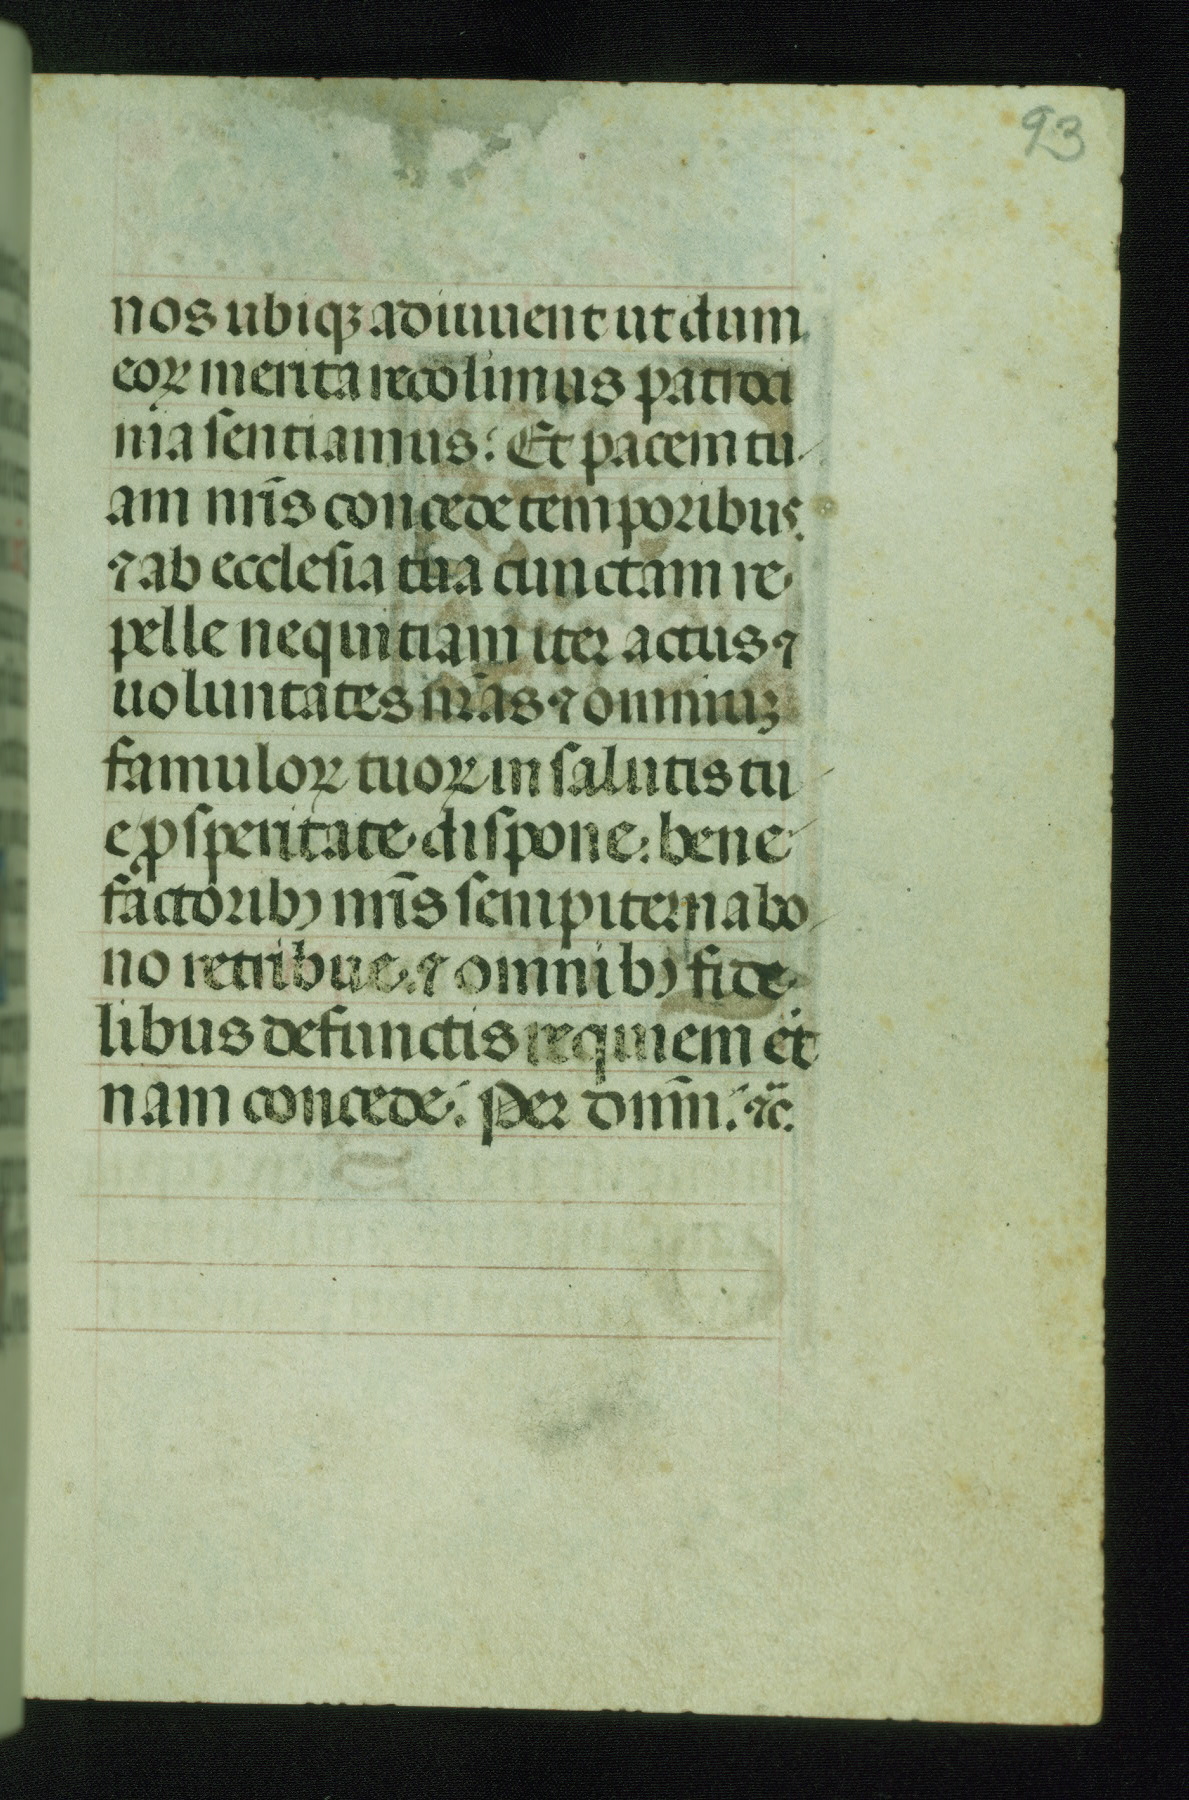 93
nos ubiqꝫ adiuuent ut dum
eoꝝ merita recolimus patroci
nia sentiamus: Et pacem tu
am nr̃is concede temporibus.
⁊ ab ecclesia tua cunctam re
pelle nequitiam iter actus ⁊
uoluntates nr̃as ⁊ omniuꝫ
famuloꝝ tuoꝝ in salutis tu
e ꝓsperitate dispone: bene
factoribꝫ nr̃is sempiterna bo
no retribue. ⁊ omnibꝫ fide
libus defunctis requiem et̾
nam concede: Per dñm. ⁊c̃.